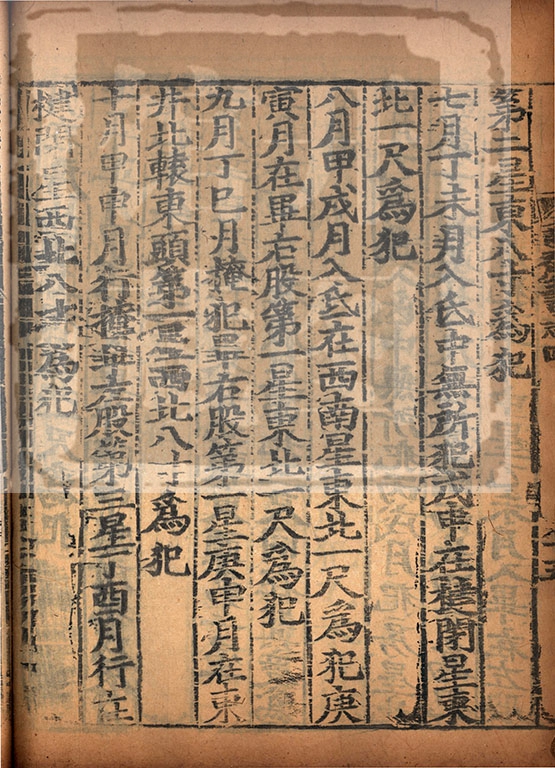 第二星東八寸爲犯
七月丁未月入氐中無所犯戊申在楗閉星東
北一尺爲犯
八月甲戌月入氐在西南星東北一尺爲犯庚
寅月在畢右股第一星東北一尺爲犯
九月丁巳月掩犯畢右股第一星庚申月在東
井北轅東頭第一星西北八寸爲犯
十月甲申月行掩畢左股第三星丁酉月行在
楗閉星西北八寸爲犯